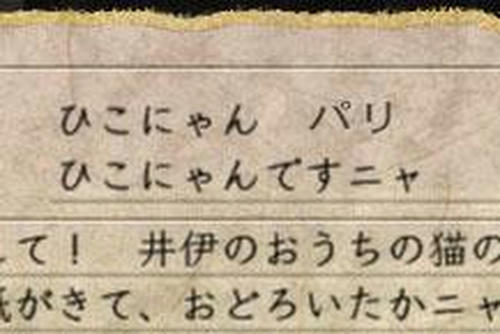 ひこにゃん　パリ
ひこにゃんですニャ
して！　井伊のおうちの猫の
紙がきて、おどろいたかニャ